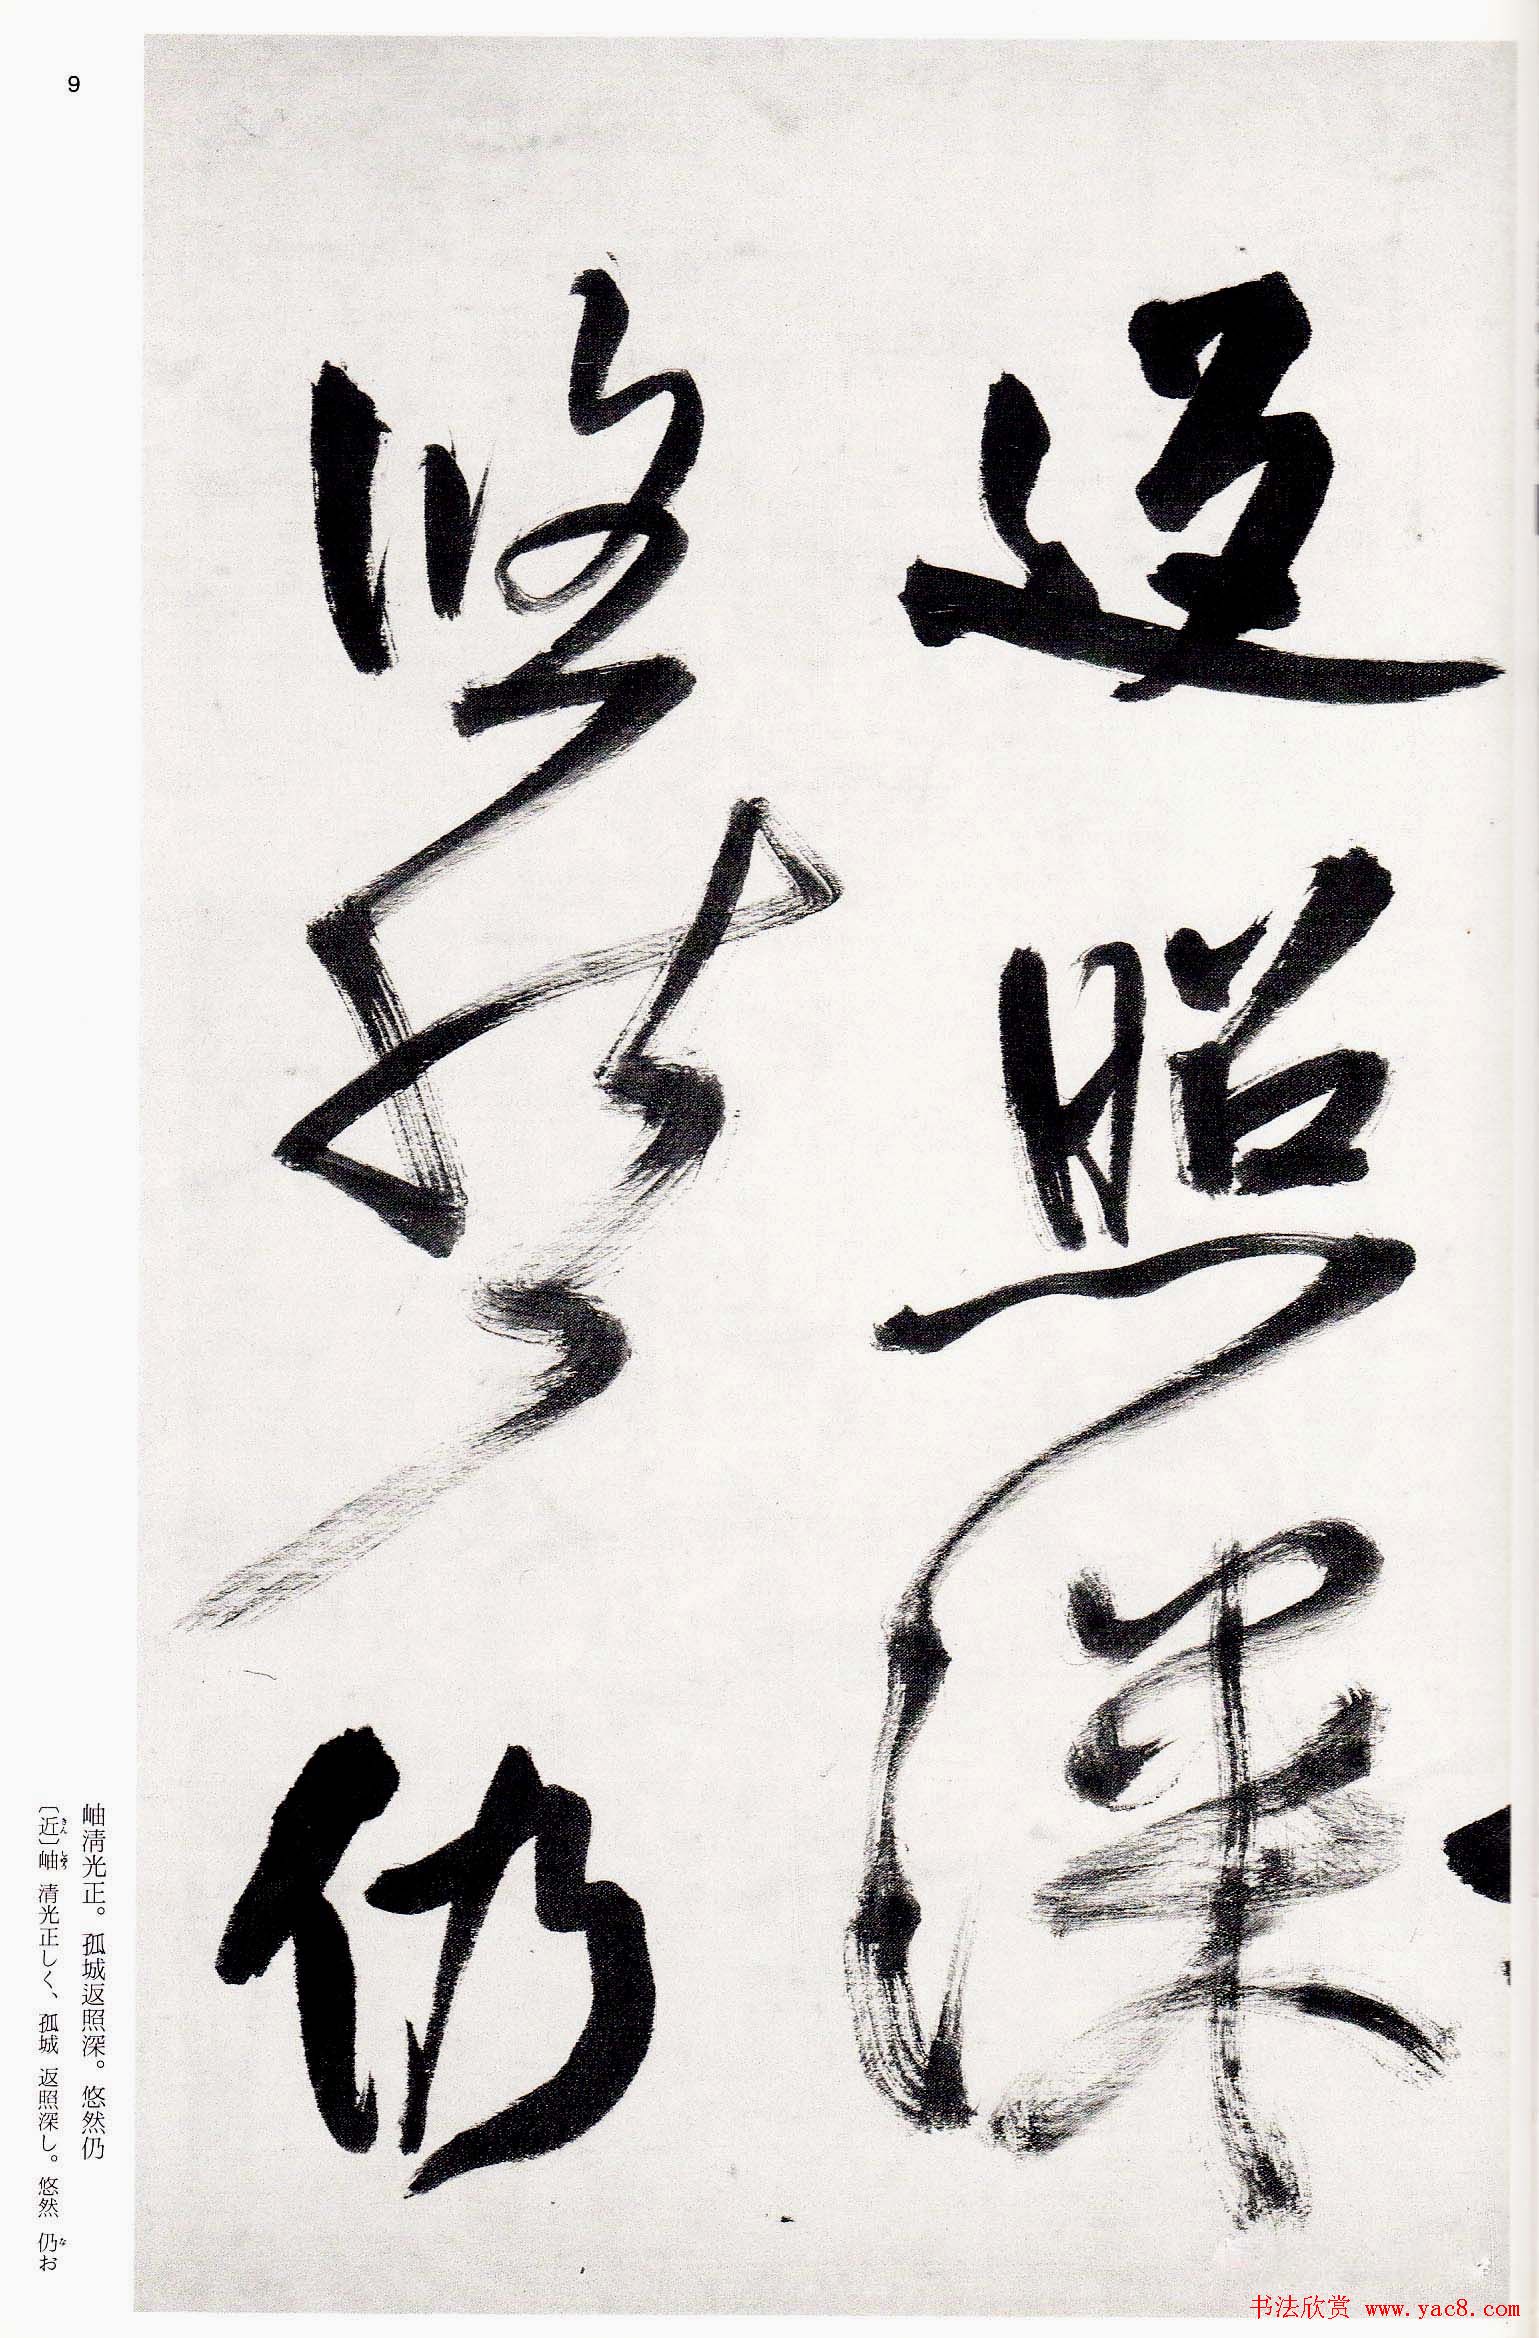 返照深
悠然仍
岫淸光正。孤城返照深。悠然仍
〔近〕岫 清光正しく、孤城 返照深し。悠然 仍お
9
书法欣赏 www.yac8.com